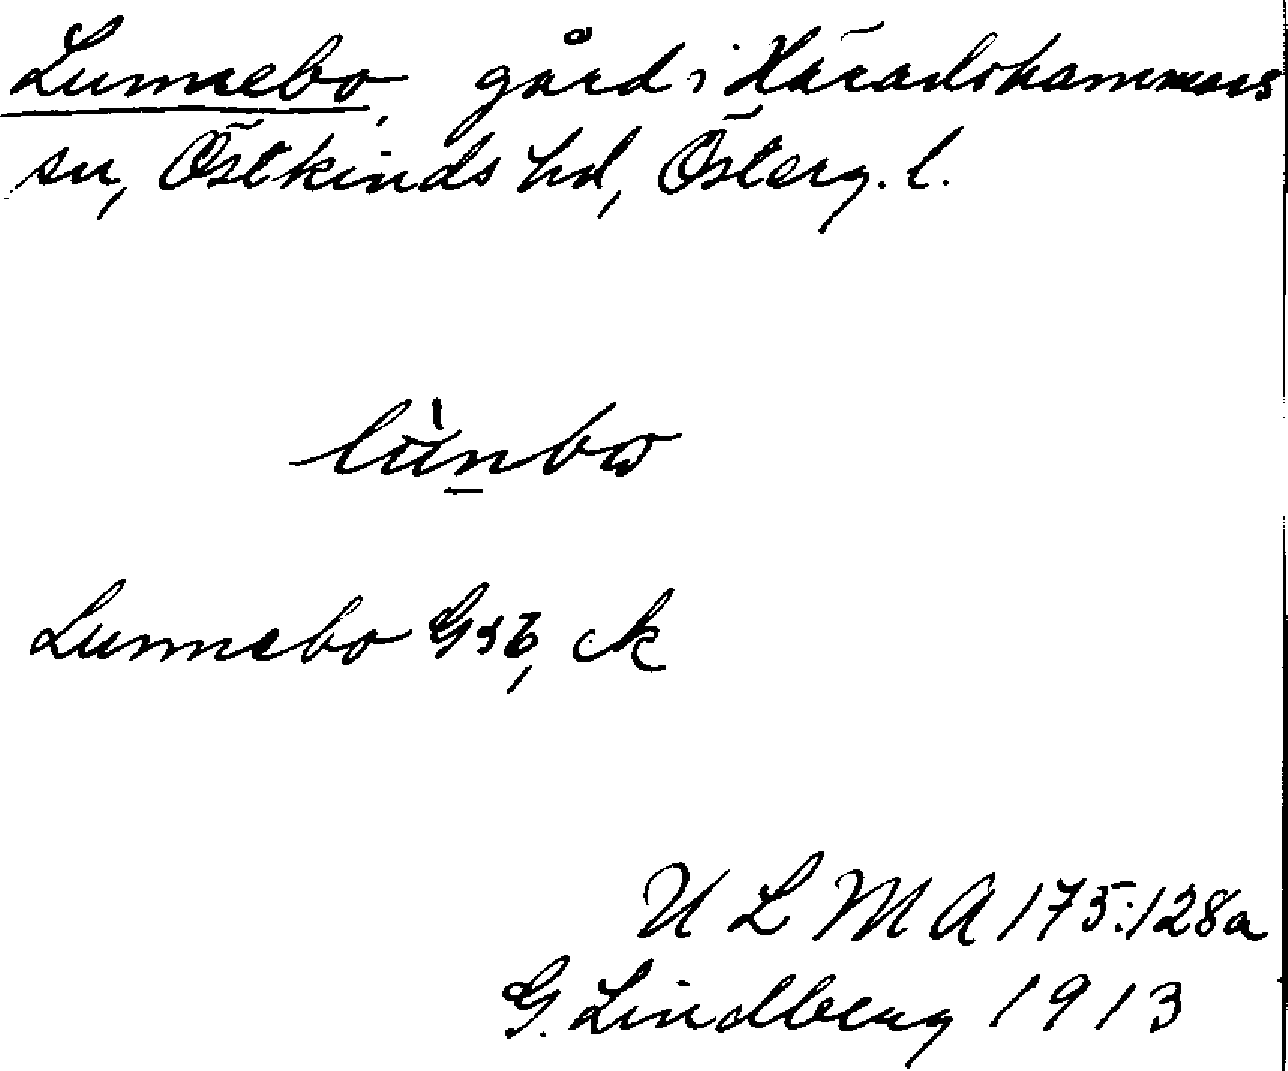 Lunnebo, gård i Häradshammars
sn, Östkinds hd, Österg. l.
lùn̠bω
Lunnebo Gsb, ek
U L M A 175:128a
G. Lindberg 1913